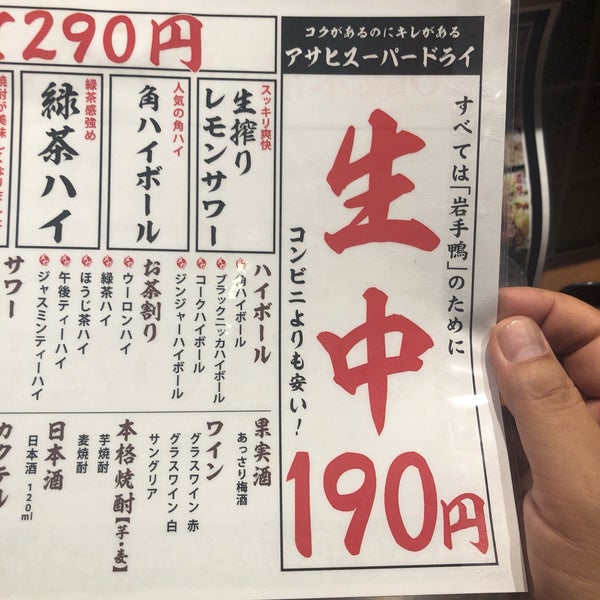 コクがあるのにキレがある
アサヒスーパードライ
すべては「岩手鴨」のために
生中
コンビニよりも安い！
190円
290円
スッキリ爽快
生搾り
レモンサワー
人気の角ハイ
角ハイボール
緑茶感強め
緑茶ハイ
ハイボール
角ハイボール
ブラックニッカハイボール
コークハイボール
ジンジャーハイボール
お茶割り
ウーロンハイ
緑茶ハイ
ほうじ茶ハイ
午後ティーハイ
ジャスミンティーハイ
サワー
果実酒
あっさり梅酒
ワイン
グラスワイン 赤
グラスワイン 白
サングリア
本格焼酎【芋・麦】
芋焼酎
麦焼酎
日本酒
日本酒 120ml
カクテル